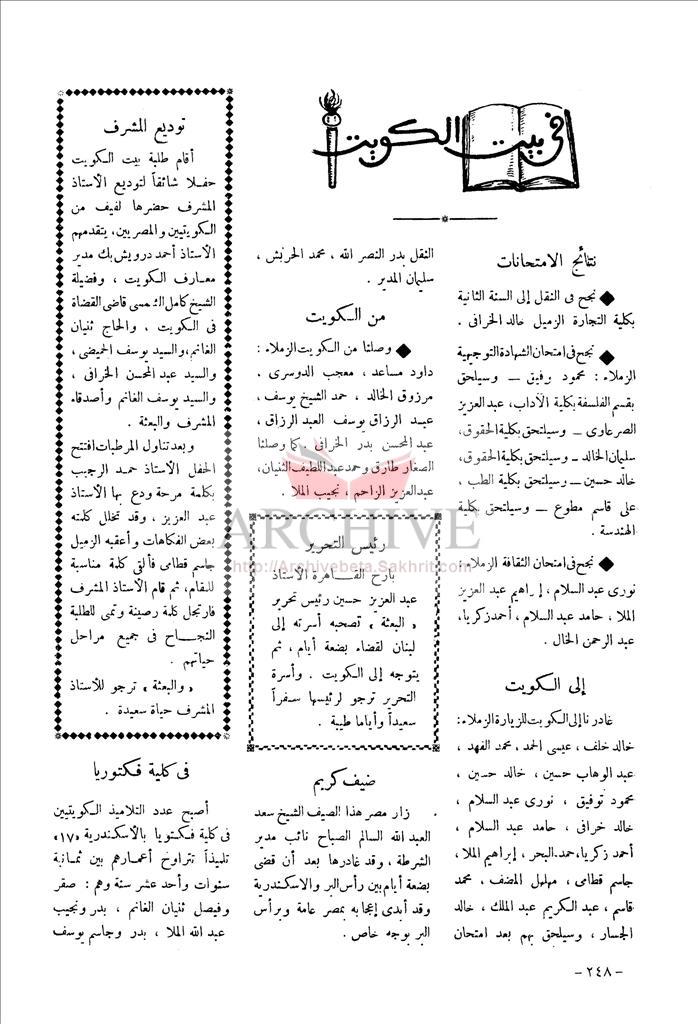 في بيت الكويت
نتائج الامتحانات
نجح في النقل إلى السنة الثانية
بكلية التجارة الزميل خالد الخرافي .
نجح في امتحان الشهادة التوجيهية
الزملاء : محمود رفيق – وسيلحق
بقسم الفلسفة بكلية الآداب، عبد العزيز
الصرعاوي – وسيلتحق بكلية الحقوق،
سليمان الخالد – وسيلتحق بكلية الحقوق،
خالد حسين – وسيلتحق بكلية الطب ،
علي قاسم مطوع – وسيلتحق بكلية
الهندسة .
نجح في امتحان الثقافة الزملاء :
نوري عبد السلام ، إبراهيم عبد العزيز
الملا ، حامد عبد السلام ، أحمد زكريا ،
عبد الرحمن الخال .
إلى الكويت
غادرنا إلى الكويت للزيارة الزملاء :
خالد خلف ، عيسى الحمد ، محمد الفهد ،
عبد الوهاب حسين ، خالد حسين ،
محمود توفيق ، نوري عبد السلام ،
خالد خرافي ، حامد عبد السلام ،
أحمد زكريا ، حمد البحر ، إبراهيم الملا ،
جاسم قطامى ، مهلهل المضف ، محمد
قاسم ، عبد الكريم عبد الملك ، خالد
الجسار ، وسيلحق بهم بعد امتحان
النقل بدر النصر الله ، محمد الخربش ،
سليمان المدير .
من الكويت
وصلنا من الكويت الزملاء :
داود مساعد ، معجب الدوسرى ،
مرزوق الخالد ، حمد الشيخ يوسف ،
عبد الرزاق يوسف العبد الرزاق ،
عبد المحسن بدر الخرافي . كما وصلنا
الصغار طارق وحمد عبد اللطيف الثنيان ،
عبد العزيز الزاحم ، نجيب الملا .
رئيس التحرير
بارح القاهرة الأستاذ
عبد العزيز حسين رئيس تحرير
« البعثة » تصحبه أسرته إلى
لبنان لقضاء بضعة أيام ، ثم
يتوجه إلى الكويت . وأسرة
التحرير ترجو لرئيسها سفراً
سعيداً وأياما طيبة .
ضيف كريم
زار مصر هذا الصيف الشيخ سعد
العبد الله السالم الصباح نائب مدير
الشرطة ، وقد غادرها بعد أن قضى
بضعة أيام بين رأس البر والاسكندرية
وقد أبدى إعجابه بمصر عامة وبرأس
البر بوجه خاص .
توديع المشرف
أقام طلبة بيت الكويت
حفلا شائقاً لتوديع الأستاذ
المشرف حضرها لفيف من
الكويتيين والمصريين، يتقدمهم
الأستاذ أحمد درويش بك مدير
معارف الكويت ، وفضيلة
الشيخ كامل الشمسى قاضى القضاة
في الكويت ، والحاج ثنيان
الغانم، والسيد يوسف الحميضي ،
والسيد عبد المحسن الخرافي ،
والسيد يوسف الغانم وأصدقاء
المشرف والبعثة .
وبعد تناول المرطبات افتتح
الحفل الأستاذ حمد الرجيب
بكلمة مرحة ودع بها الأستاذ
عبد العزيز ، وقد تخلل كلمته
بعض الفكاهات وأعقبه الزميل
جاسم قطامى فألقى كلمة مناسبة
للمقام، ثم قام الأستاذ المشرف
فارتجل كلمة رصينة وتمنى للطلبة
النجاح في جميع مراحل
حياتهم .
« والبعثة » ترجو للأستاذ
المشرف حياة سعيدة .
في كلية فكتوريا
أصبح عدد التلاميذ الكويتيين
في كلية فكتويا بالأسكندرية «١٧»
تلميذاً تتراوح أعمارهم بين ثمانية
سنوات وأحد عشر سنة وهم : صقر
وفيصل ثنيان الغانم ، بدر ونجيب
عبد الله الملا ، بدر وجاسم يوسف
- ٢٤٨ -
ARCHIVE
http://Archivebeta.Sakhrit.com